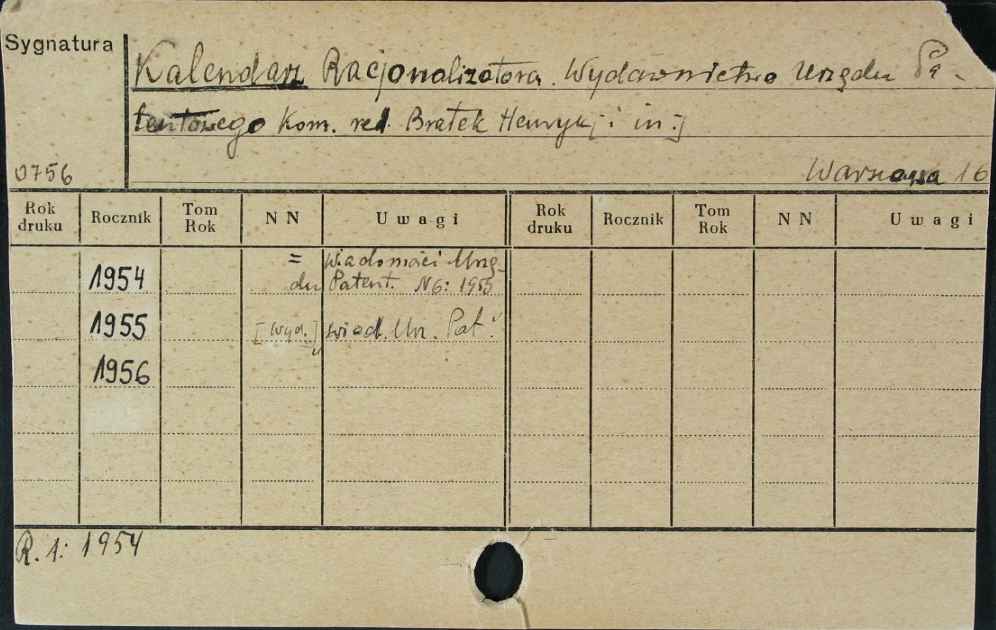 Sygnatura
Kalendarz Racjonalizatora. Wydawnictwo Urzędu Pa-
tentowego Kom. red. Bratek Henryk i in.
0756
Warszawa 16
Rok druku Rocznik Tom Rok N N Uwagi Rok druku Rocznik Tom Rok N N Uwagi
= Wiadomości Urzę-
1954 du Patent. N 6: 1955
1955 [Wyd.] "wiad. Urz. Pat."
1956
R. 1: 1954